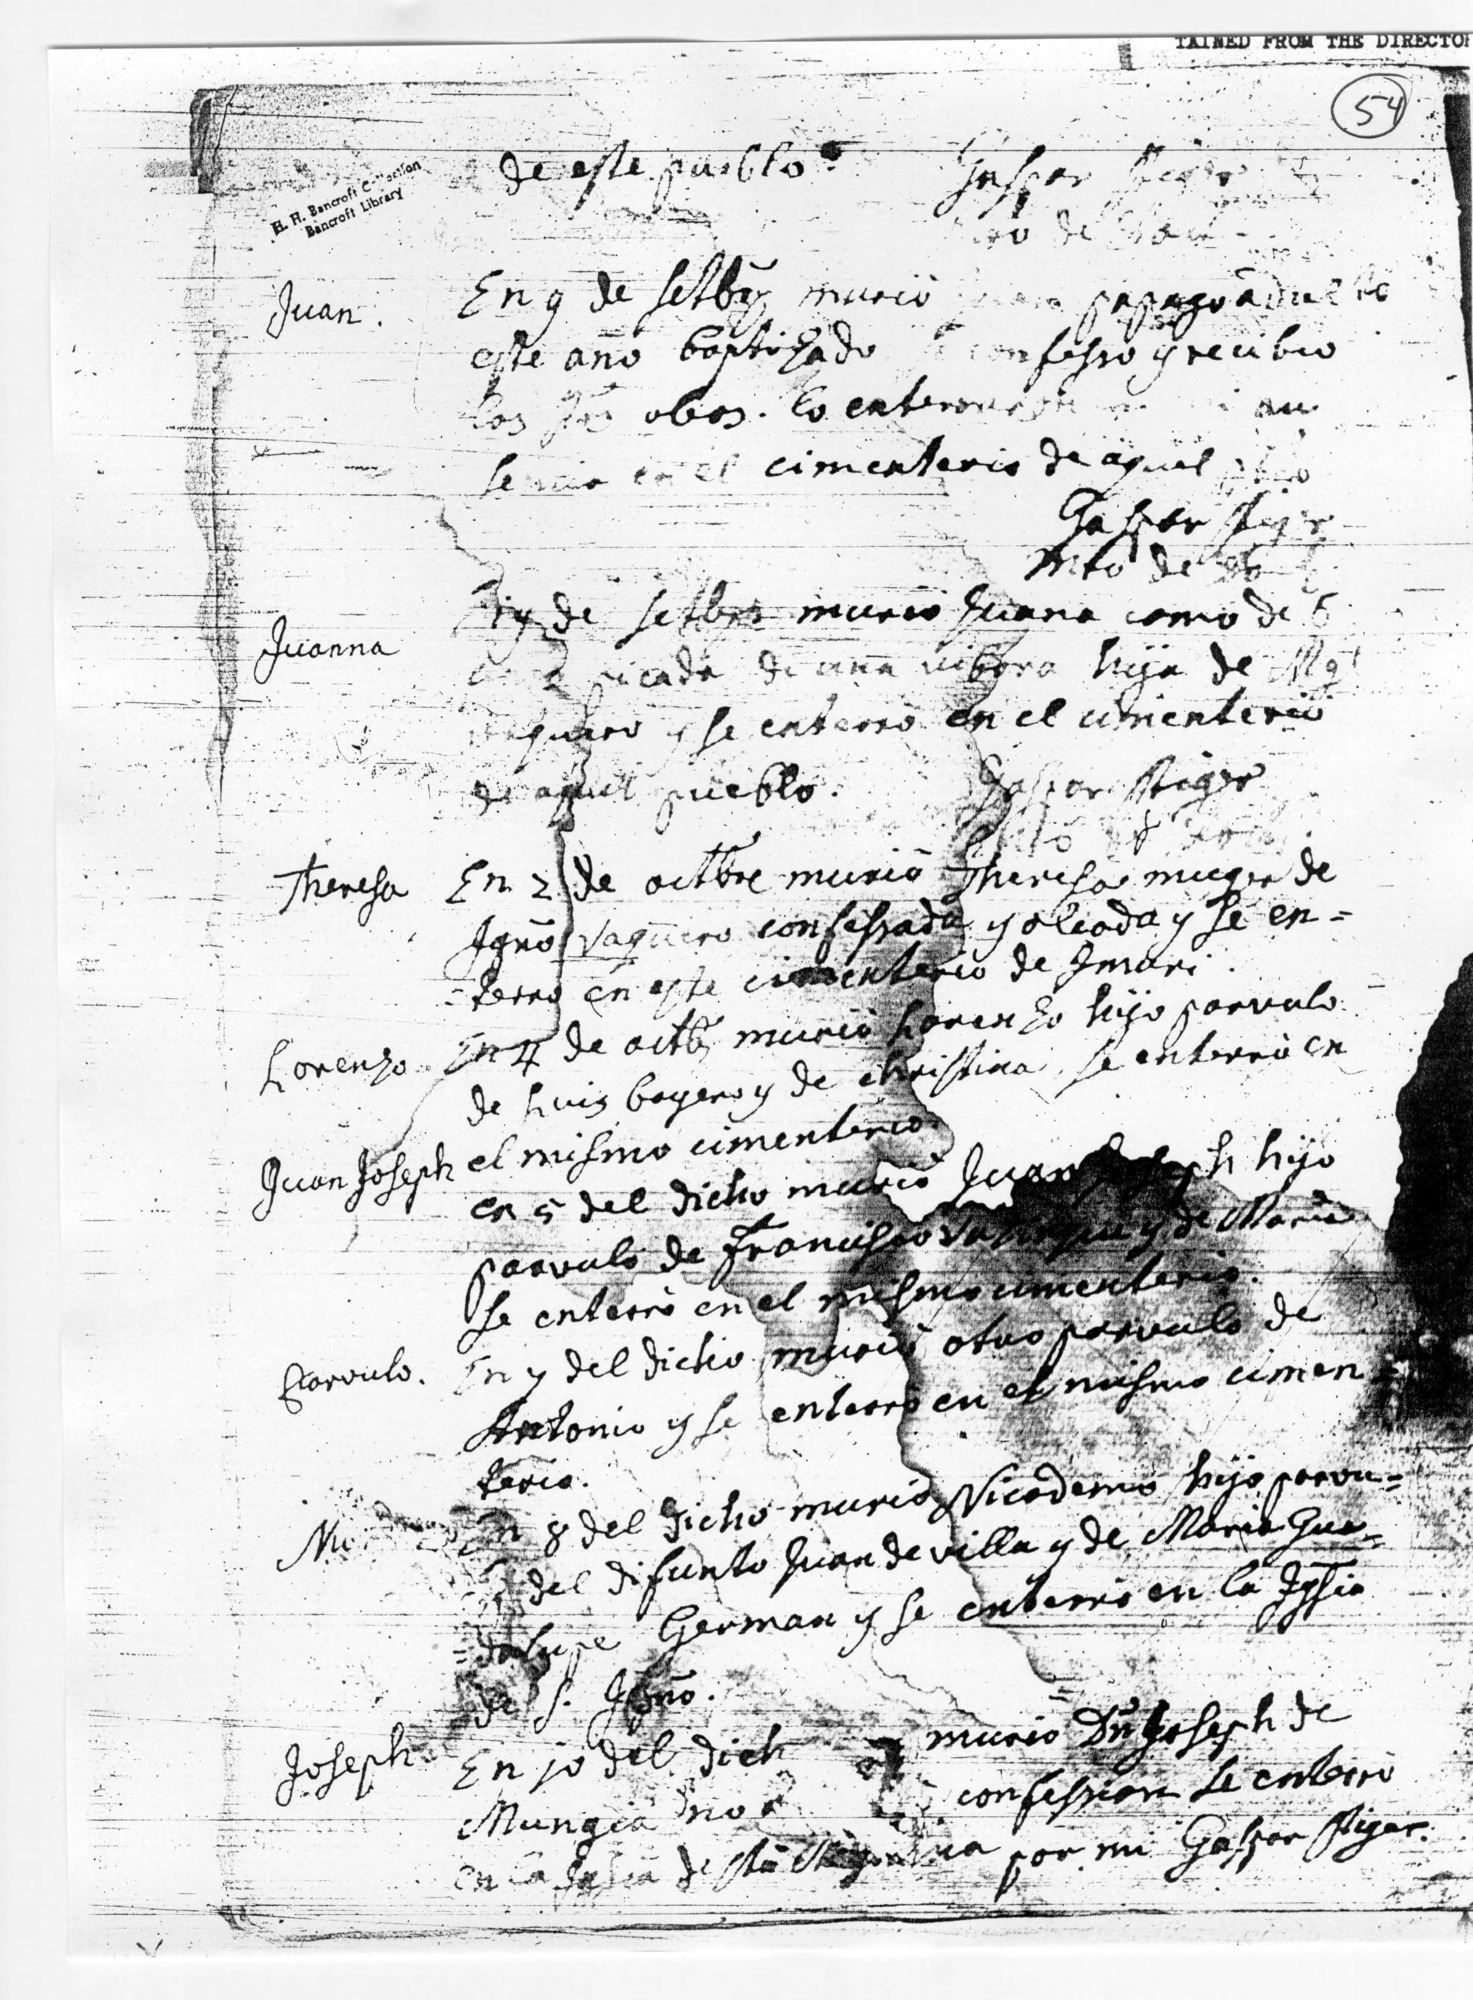 TAINED FROM THE DIRECTOR
54
H. H. Bancroft Collection
Bancroft Library
de este pueblo. Gaspar Stiger
de
Juan. En 9 de setbre murió papago adulto
este año baptizado confesso y recibio
los obos. lo enterraron au
sencia en el cimenterio de aquel
Gaspar Stiger
Mro de
Juanna de setbre murió Juana como de 6
picada de una vibora hija de Mgl
vaquero y se enterró en el cimenterio
de aquel pueblo. Gaspar Stiger
Theresa En 2 de octbre murió Theresa muger de
Ignõ vaquero confessada y oleada y se en=
=terró en este cimenterio de Imuri.
Lorenzo En 4 de octb murió Lorenzo hijo parvulo
de Luis boyero y de christina. se enterró en
el mismo cimenterio.
Juan Joseph en 5 del dicho murió Juan Joseph hijo
parvulo de Francisco y de Maria
se enterró en el mismo cimenterio.
Parvulo. En 7 del dicho murió otro parvulo de
Antonio y se enterró en el mismo cimen=
terio.
En 8 del dicho murió Nicodemo hijo parvu=
del difunto Juan de villa y de Maria Gua=
=dalupe German y se enterró en la Igsia
de S. Ignõ.
Joseph. En 10 del dich murió Dn Joseph de
Mungia no confession se enterró
en la Igsia de sta por mi Gaspar Stiger.